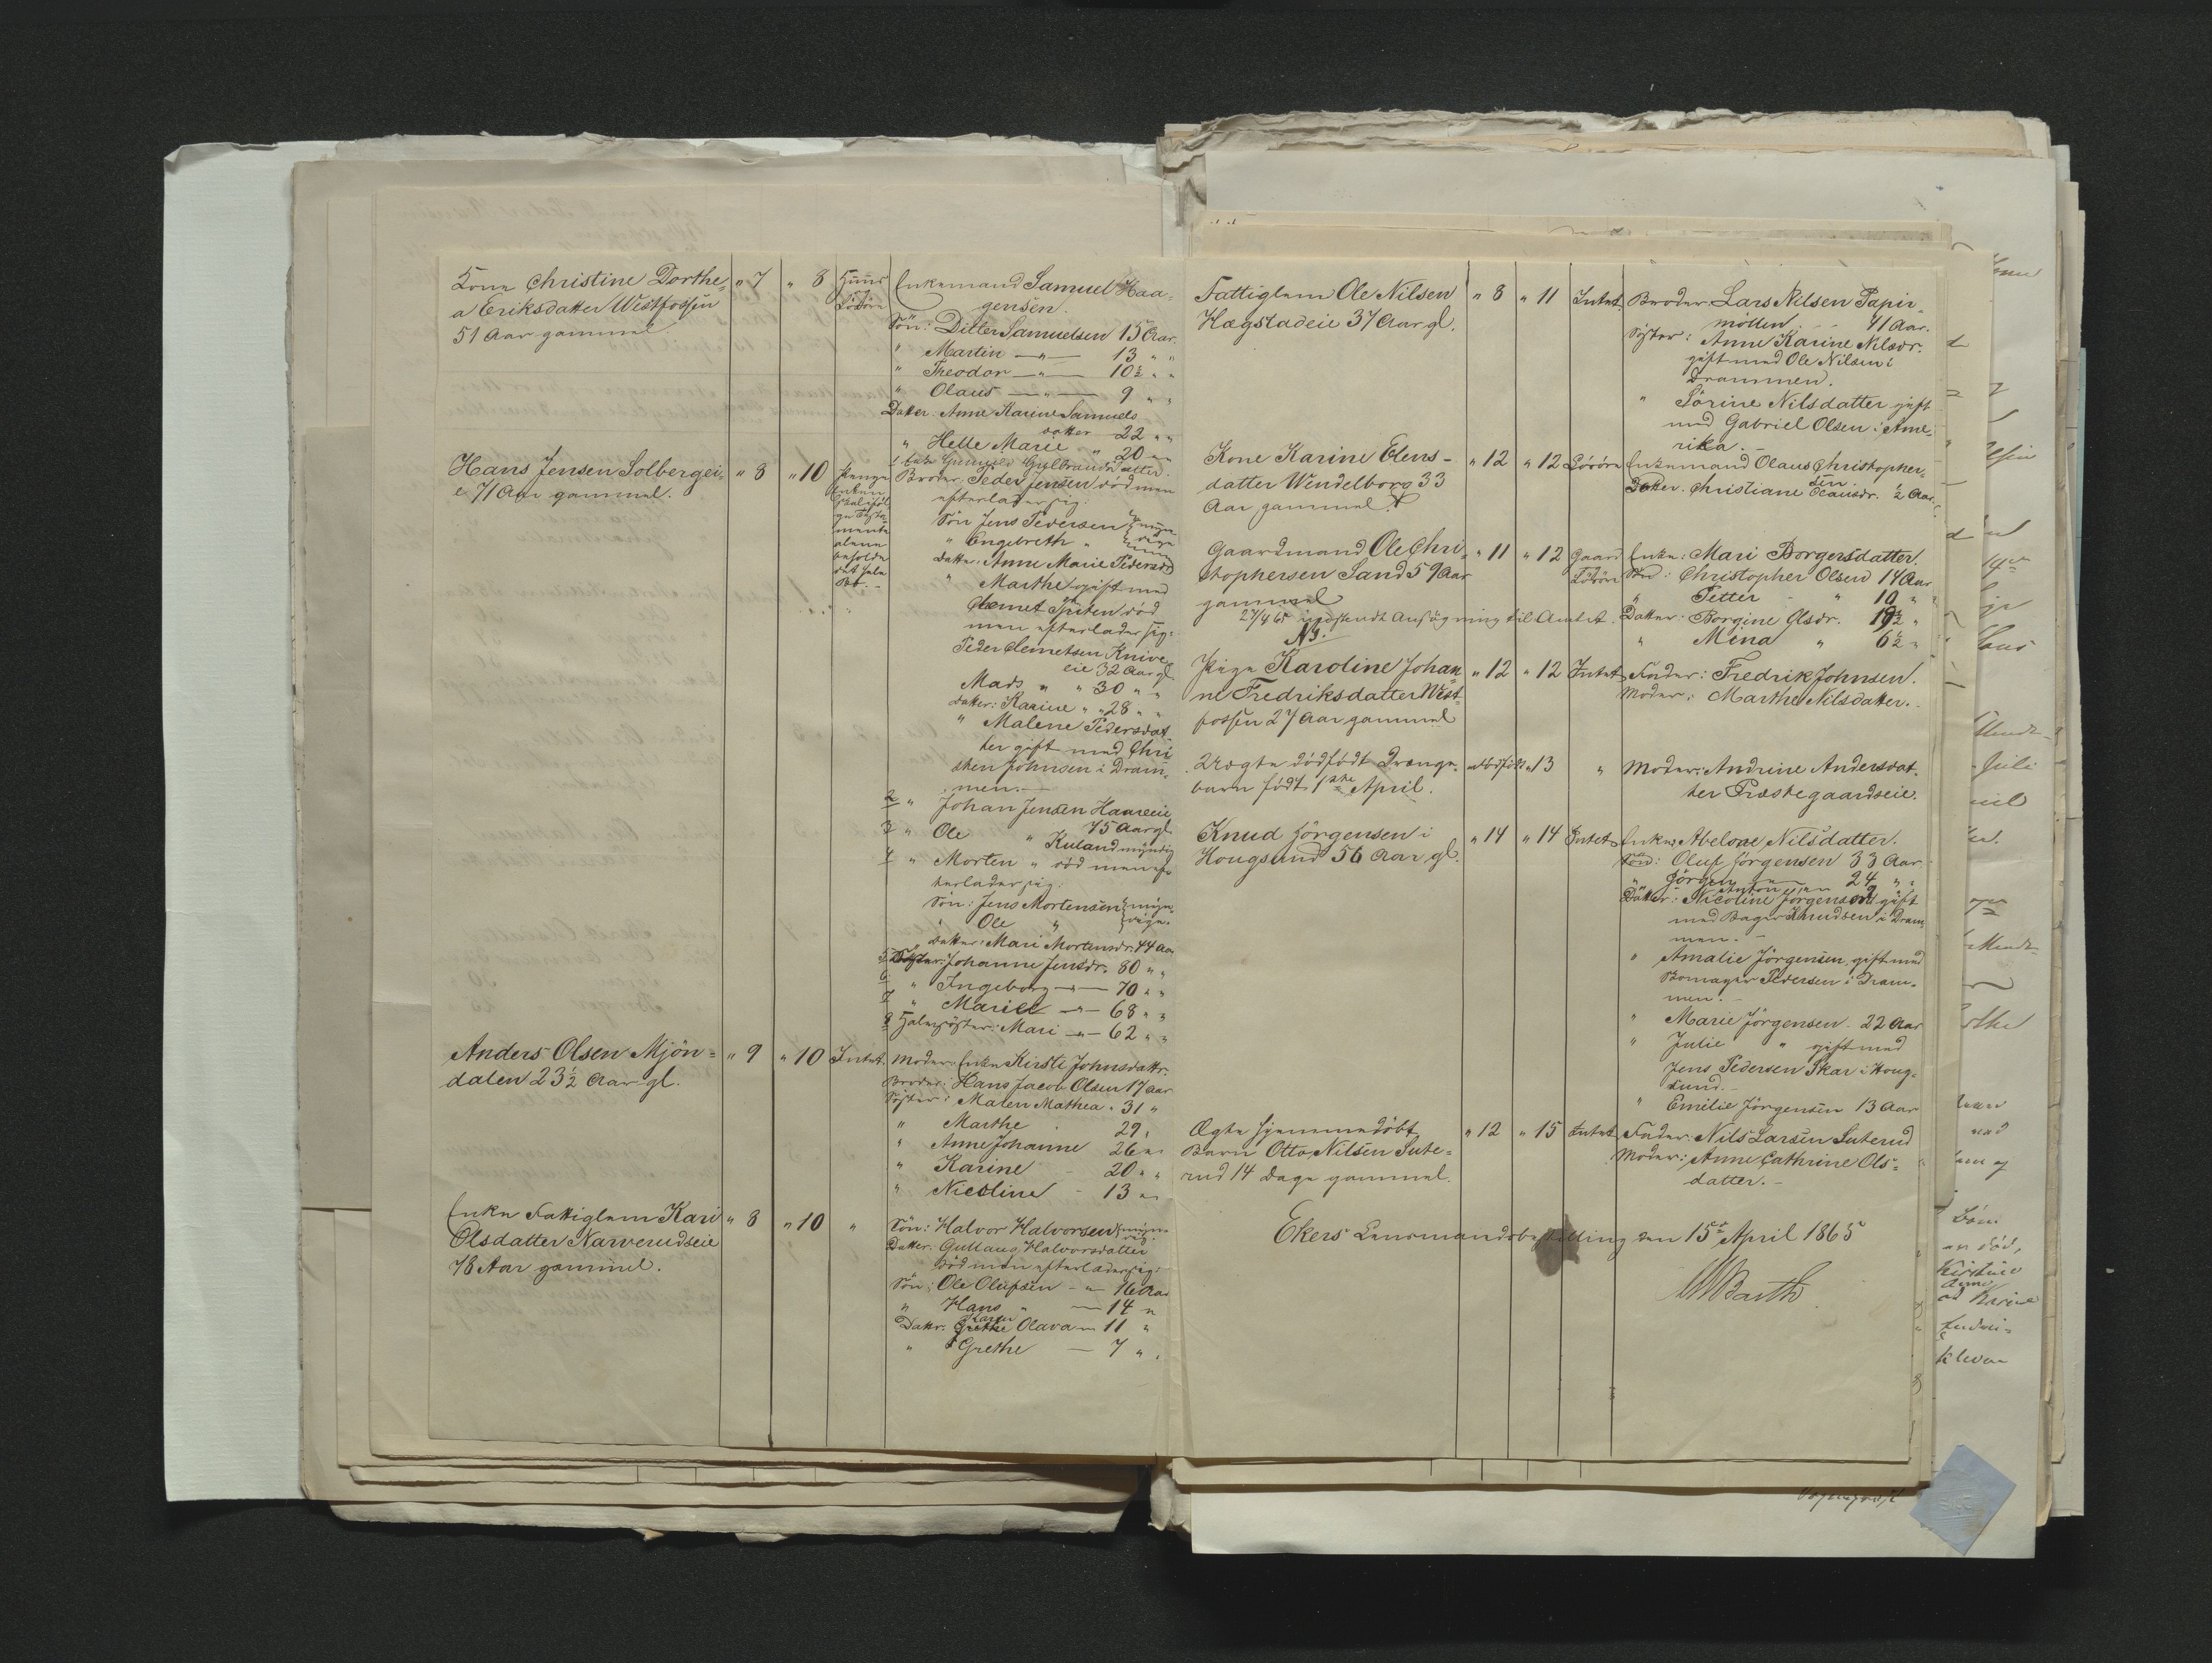 Kone Christine Dorthe-
a Eriksdatter Westfossen
51 Aar gammel.
" 7
" 8
Huus
Lösöre
Enkemand Samuel Haa-
gensen.
Sön: Ditler Samuelsen 15 Aar.
" Martin —"— 13 " "
" Theodor —"— 10½ " "
" Olaus —"— 9 " "
Datter: Anne Karine Samuels
datter 22 " "
" Helle Marie " 20 " "
Hans Jensen Solbergei-
e 71 Aar gammel.
" 8
" 10
Penge
Enken
ifölge Testa-
mente
alene
beholde
det hele
Bo.
Enke Gunild Gulbrandsdatter
1 Broder: Peder Jensen död men
efterlader sig:
Sön Jens Pedersen } myn-
" Engebreth " } dige
Datter: Anne Marie Pedersd
" Marthe gift med
Clemet Spiten död
men efterlader sig:
Peder Clemetsen Knive-
eie 32 Aar gl.
Mads " " 30 " "
Datter: Karine " " 28 " "
" Malene Pedersdat-
ter gift med Chri
sten Johnsen i Dram-
men.—
2 " Johan Jensen Haareeie
75 Aar gl.
3 " Ole " Ruland myndig
4 " Morten " död men ef-
terlader sig:
Sön: Jens Mortensen } myn-
" Ole " } dige.
Datter: Mari Mortensdr. 44 Aar
5 Söster: Johanne Jensdr. 80 " "
6 " Ingeborg —"— 70 " "
7 " Marie —"— 68 " "
8 Halvsöster: Mari —"— 62 " "
Anders Olsen Mjön-
dalen 23½ Aar gl.
" 9
" 10
Intet
Moder: Enke Kirsti Johnsdattr.
Broder: Hans Jacob Olsen 17 Aar
Söster: Maren Mathea " 31 "
" Marthe 29 "
" Anne Johanne 26 " "
" Karine - 20 " "
" Nicoline - 13 " "
Enke Fattiglem Kari
Olsdatter Narverudseie
78 Aar gammel.
" 8
" 10
"
Sön: Halvor Halvorsen } myn-
dig.
Datter: Gullaug Halvorsdatter
död men efterlader sig:
Sön: Ole Olufsen - " 16 Aar
" Hans " — 14 "
Karen
Dattr. Grethe Olava " 11 "
" Grethe — 7 " "
Fattiglem Ole Nilsen
Hægstadeie 37 Aar gl.
" 8
" 11
Intet
Broder: Lars Nilsen Papir-
möllen - - 41 Aar.
Söster: Anne Karine Nilsdr.
gift med Ole Nilsen i
Drammen.
" Sörine Nilsdatter gift
med Gabriel Olsen i Ame-
rika.—
Kone Karine Elens-
datter Windelborg 33
Aar gammel.
" 12
" 12
Lösöre
Enkemand Olaus Christopher-
sen.
Datter: Christiane Olausdr. ½ Aar.
Gaardmand Ole Chri-
stophersen Sand 59 Aar
gammel
" 11
" 12
Gaard
Lösöre
Enke: Mari Borgersdatter.
Sön: Christopher Olsen 14 Aar
" Petter - " 10 " "
27/4 65 indsendt Ansögning til Amtet.
NJ.
Datter: Borgine Olsdr. 19½ "
" Mina " 6½ "
Pige Karoline Johan-
ne Fredriksdatter West-
fossen 27 Aar gammel
" 12
" 12
Intet
Fader: Fredrik Johnsen.
Moder: Marthe Nilsdatter.—
Uægte dödfödt Drenge-
barn födt 1ste April.
dödfödt
" 13
"
Moder: Andrine Andersdat-
ter Præstegaardseie.
Knud Jörgensen i
Hougsund 56 Aar gl.
" 14
" 14
Intet
Enke: Abelone Nilsdatter.
Sön: Oluf Jörgensen 33 Aar
" Jörgen —"— 24 " "
Anton
Datter: Nicoline Jörgensen gift
med Bager Knudsen i Dram-
men.—
" Amalie Jörgensen, gift med
Pedersen i Dram-
men.—
" Marie Jörgensen 22 Aar
" Julie " gift med
Jens Pedersen Skar i Houg-
sund.—
" Emilie Jörgensen 13 Aar
Ægte hjemmedöbt
Barn Otto Nilsen Sute-
rud 14 Dage gammel.
" 12
" 15
Intet
Fader: Nils Larsen Suterud
Moder: Anne Cathrine Ols-
datter.—
Ekers Lensmandsbestilling den 15de April 1865
Barth